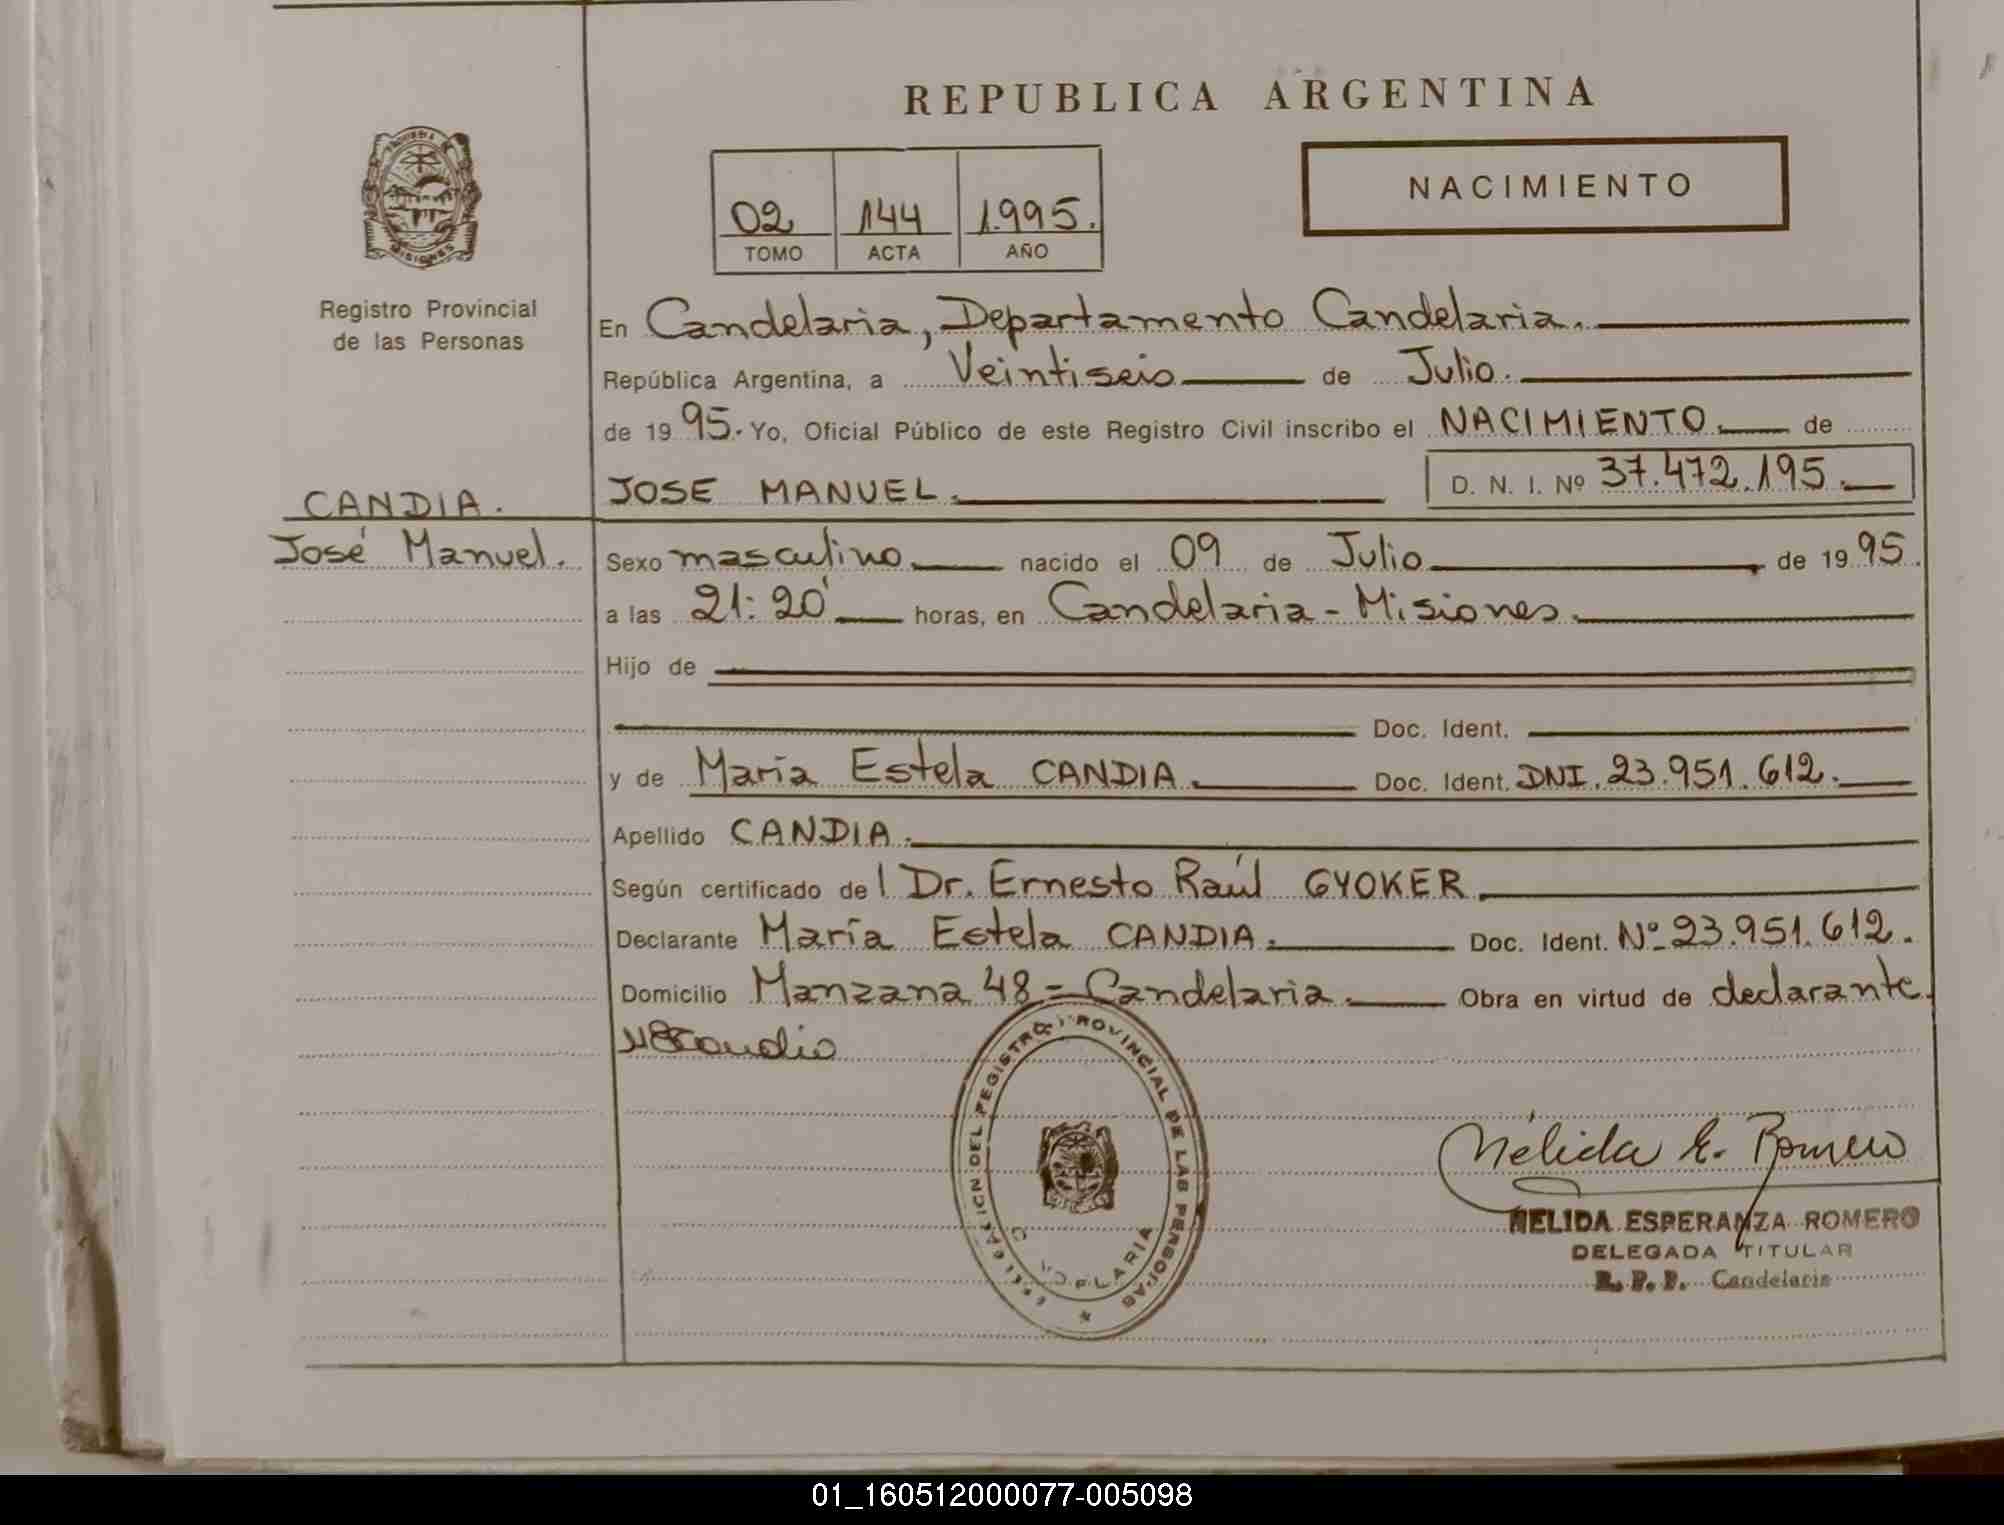 REPUBLICA ARGENTINA
NACIMIENTO
02 144 1.995.
TOMO ACTA AÑO
MISIONES
Registro Provincial
de las Personas
En Candelaria, Departamento Candelaria.
República Argentina, a Veintiseis de Julio.
de 19 95. Yo, Oficial Público de este Registro Civil inscribo el NACIMIENTO. de
JOSE MANUEL. D. N. I. Nº 37.472.195.
CANDIA.
José Manuel.
Sexo masculino nacido el 09 de Julio de 19 95.
a las 21:20' horas, en Candelaria - Misiones.
Hijo de
Doc. Ident.
y de María Estela CANDIA. Doc. Ident. DNI. 23.951.612.
Apellido CANDIA.
Según certificado de l Dr. Ernesto Raúl GYOKER
Declarante María Estela CANDIA. Doc. Ident. Nº 23.951.612.
Domicilio Manzana 48 - Candelaria. Obra en virtud de declarante.
DEL REGISTRO PROVINCIAL DE LAS PERSONAS
Nélida E. Romero
NELIDA ESPERANZA ROMERO
DELEGADA TITULAR
R. P. P. Candelaria
01_160512000077-005098